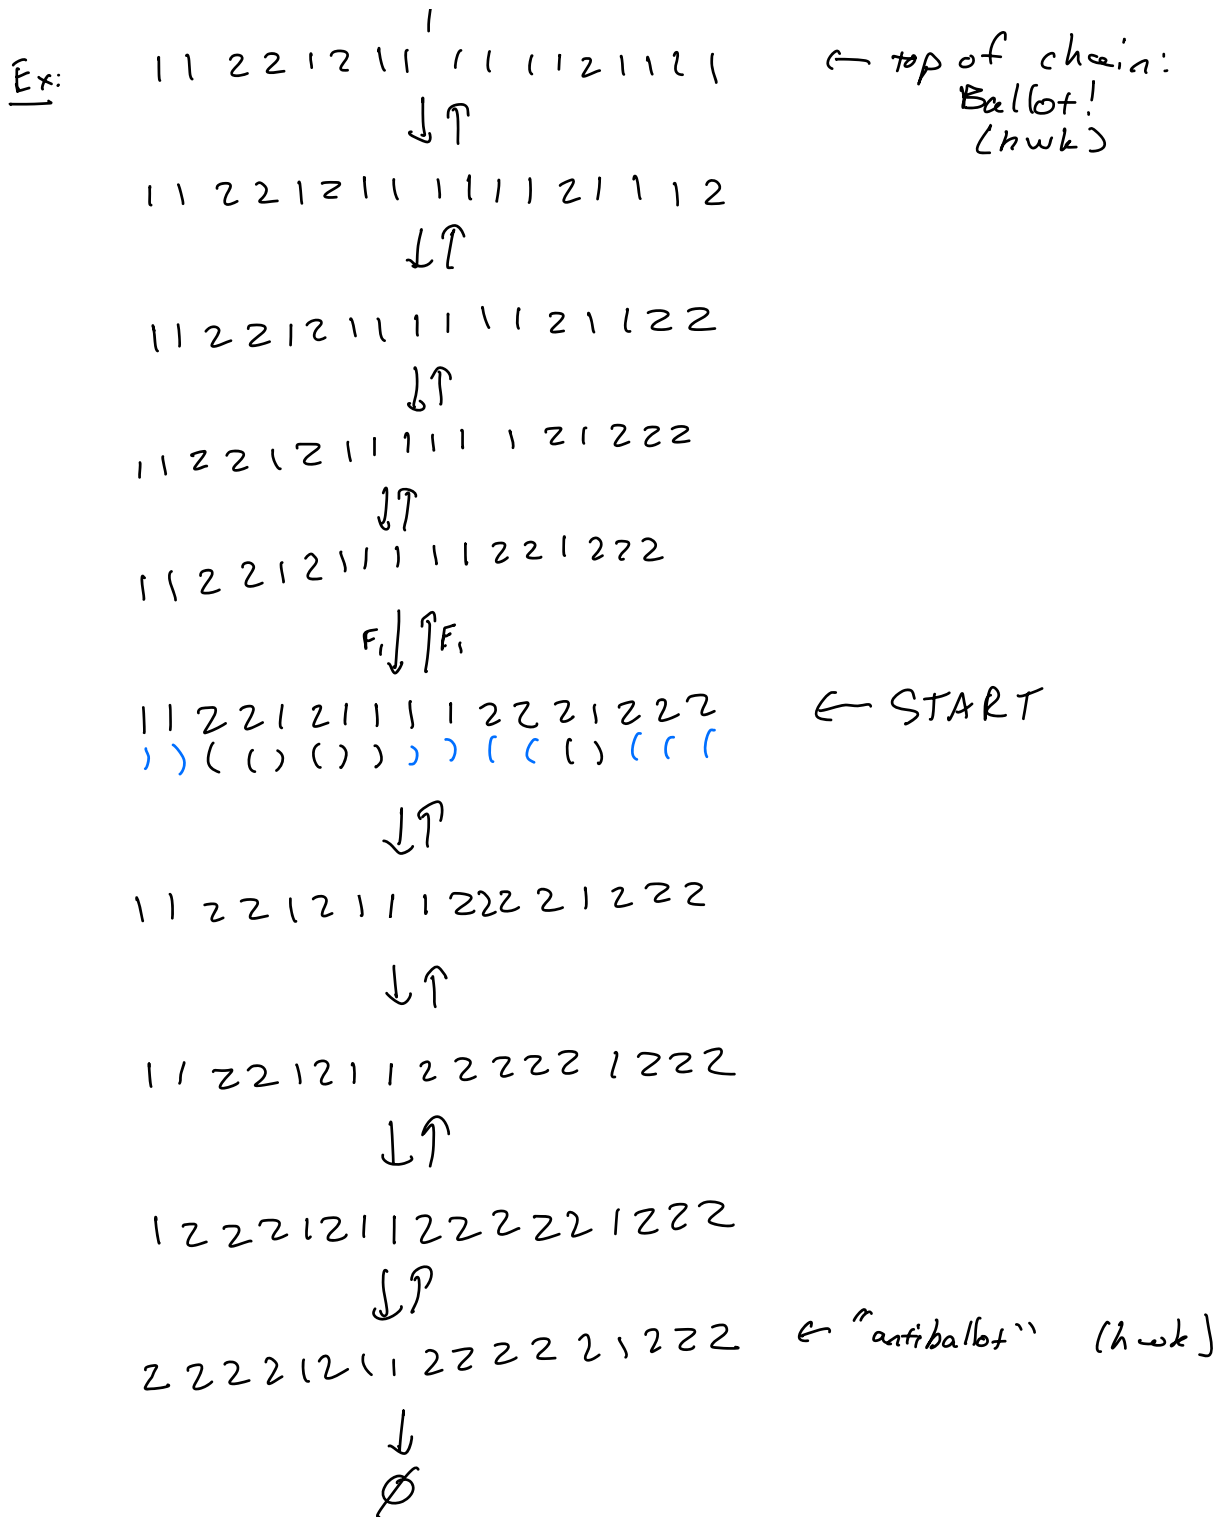 1
Ex: 1 1 2 2 1 2 1 1 1 1 1 1 2 1 1 2 1 ← top of chain:
Ballot!
(hwk)
↓↑
1 1 2 2 1 2 1 1 1 1 1 1 2 1 1 1 2
↓↑
1 1 2 2 1 2 1 1 1 1 1 1 2 1 1 2 2
↓↑
1 1 2 2 1 2 1 1 1 1 1 1 2 1 2 2 2
↓↑
1 1 2 2 1 2 1 1 1 1 1 2 2 1 2 2 2
F₁ ↓ ↑ E₁
1 1 2 2 1 2 1 1 1 1 2 2 2 1 2 2 2 ← START
) ) ( ( ) ( ) ) ) ) ( ( ( ) ( ( (
↓↑
1 1 2 2 1 2 1 1 1 2 2 2 2 1 2 2 2
↓↑
1 1 2 2 1 2 1 1 2 2 2 2 2 1 2 2 2
↓↑
1 2 2 2 1 2 1 1 2 2 2 2 2 1 2 2 2
↓↑
2 2 2 2 1 2 1 1 2 2 2 2 2 1 2 2 2 ← "antiballot" (hwk)
↓
∅